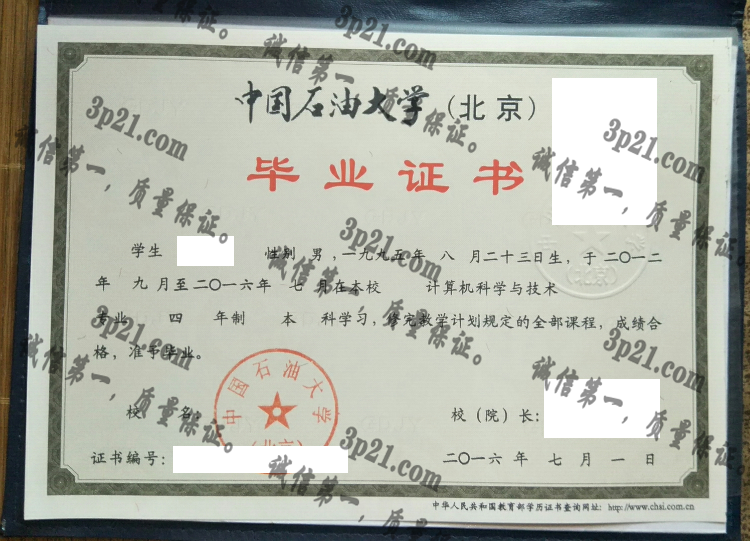 3p21.com
诚信第一，质量保证。
中国石油大学（北京）
毕业证书
学生 性别 男，一九九五年 八 月二十三日生，于二〇一二
年 九 月至二〇一六年 七 月在本校 计算机科学与技术
专业 四 年制 本 科学习，修完教学计划规定的全部课程，成绩合
格，准予毕业。
中国石油大学
（北京）
校 名： 校（院）长：
证书编号： 二〇一六 年 七 月 一 日
中华人民共和国教育部学历证书查询网址：http://www.chsi.com.cn
3p21.com
诚信第一，质量保证。
3p21.com
诚信第一，质量保证。
3p21.com
诚信第一，质量保证。
3p21.com
诚信第一，质量保证。
3p21.com
诚信第一，质量保证。
3p21.com
诚信第一，质量保证。